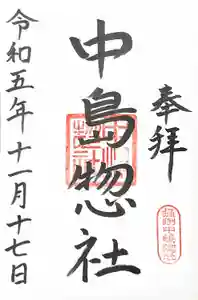 奉拝
中島惣社
令和五年十一月十七日